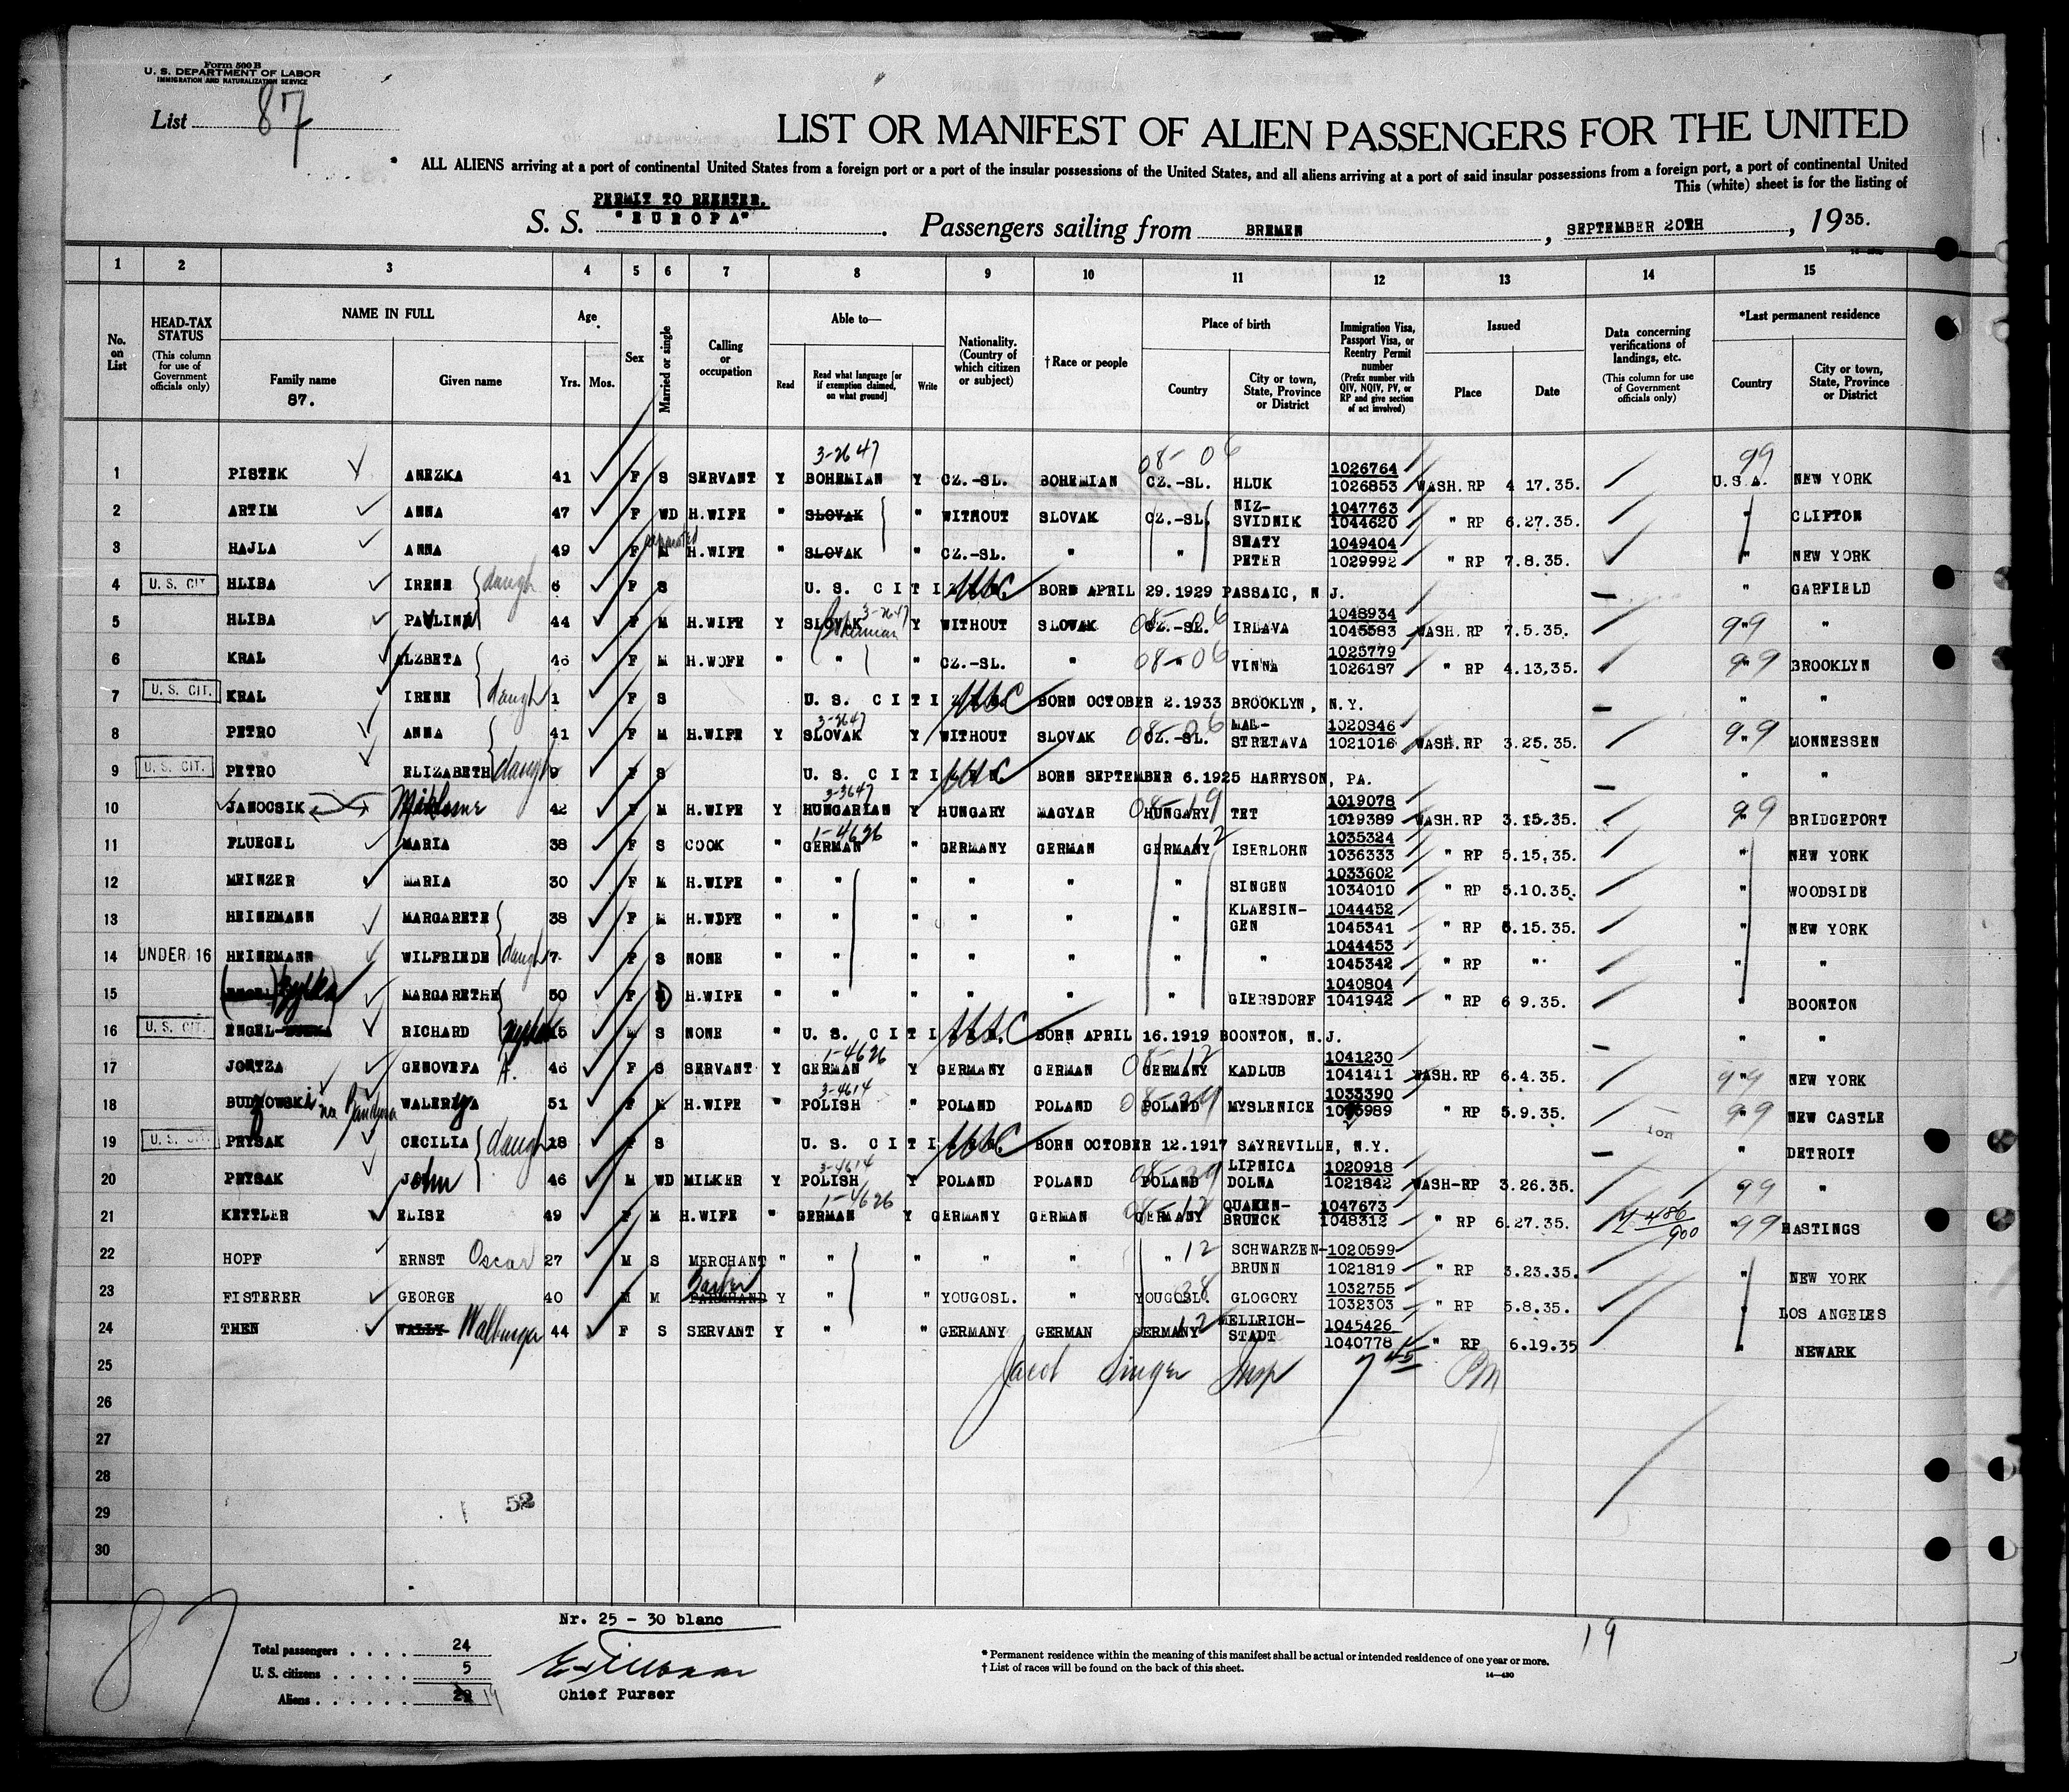 Form 500 B
U. S. DEPARTMENT OF LABOR
IMMIGRATION AND NATURALIZATION SERVICE
List 87
LIST OR MANIFEST OF ALIEN PASSENGERS FOR THE UNITED
* ALL ALIENS arriving at a port of continental United States from a foreign port or a port of the insular possessions of the United States, and all aliens arriving at a port of said insular possessions from a foreign port, a port of continental United
This (white) sheet is for the listing of
PERMIT TO REENTER.
S. S. "EUROPA". Passengers sailing from BREMEN, SEPTEMBER 20TH, 1935.
1 2 3 4 5 6 7 8 9 10 11 12 13 14 15
No. on List
HEAD-TAX STATUS (This column for use of Government officials only)
NAME IN FULL
Family name 87.
Given name
Age Yrs. Mos.
Sex
Married or single
Calling or occupation
Able to—
Read
Read what language [or if exemption claimed, on what ground]
Write
Nationality. (Country of which citizen or subject)
† Race or people
Place of birth
Country
City or town, State, Province or District
Immigration Visa, Passport Visa, or Reentry Permit number (Prefix number with QIV, NQIV, PV, or RP and give section of act involved)
Issued
Place
Date
Data concerning verifications of landings, etc. (This column for use of Government officials only)
*Last permanent residence
Country
City or town, State, Province or District
3-2647 08-06 99
1 PISTEK ANEZKA 41 F S SERVANT Y BOHEMIAN Y CZ.-SL. BOHEMIAN CZ.-SL. HLUK 1026764 1026853 WASH. RP 4 17.35. U.S.A. NEW YORK
2 ARTIM ANNA 47 F WD H.WIFE " SLOVAK " WITHOUT SLOVAK CZ.-SL. NIZ-SVIDNIK 1047763 1044620 " RP 6.27.35. " CLIFTON
3 HAJLA ANNA 49 F M separated H.WIFE " SLOVAK " CZ.-SL. " " SEATY PETER 1049404 1029992 " RP 7.8.35. " NEW YORK
4 U. S. CIT. HLIBA IRENE daugh 6 F S U. S. CITIZEN. USC BORN APRIL 29.1929 PASSAIC, N J. " GARFIELD
5 HLIBA PAULINA 44 F M H.WIFE Y SLOVAK 3-2647 Bohemian Y WITHOUT SLOVAK CZ.-SL. 08-06 IRLAVA 1048934 1045583 WASH. RP 7.5.35. 99 " "
6 KRAL ALZBETA 46 F M H.WOFE " " " CZ.-SL. " " 08-06 VINNA 1025779 1026187 " RP 4.13.35. 99 " BROOKLYN
7 U. S. CIT. KRAL IRENE daugh 1 F S U. S. CITIZEN. USC BORN OCTOBER 2.1933 BROOKLYN, N.Y. " "
8 PETRO ANNA 41 F M H.WIFE Y SLOVAK 3-2647 Y WITHOUT SLOVAK CZ.-SL. 08-06 MAL-STRETAVA 1020346 1021016 WASH. RP 3.25.35. 99 " MONNESSEN
9 U. S. CIT. PETRO ELIZABETH daugh 9 F S U. S. CITIZEN. USC BORN SEPTEMBER 6.1925 HARRYSON, PA. " "
10 JANOCSIK 42 F M H.WIFE Y HUNGARIAN 3-3647 Y HUNGARY MAGYAR HUNGARY 08-19 TET 1019078 1019389 WASH. RP 3.15.35. 99 " BRIDGEPORT
11 FLUEGEL MARIA 38 F S COOK " GERMAN 1-4626 " GERMANY GERMAN GERMANY 12 ISERLOHN 1035324 1036333 " RP 5.15.35. " NEW YORK
12 MEINZER MARIA 30 F M H.WIFE " " " " " " SINGEN 1033602 1034010 " RP 5.10.35. " WOODSIDE
13 HEINEMANN MARGARETE 38 F M H.WDFE " " " " " " KLAESIN-GEN 1044452 1045341 " RP 6.15.35. " NEW YORK
14 UNDER 16 HEINEMANN WILFRIEDE daugh 7 F S NONE " " " " " " " 1044453 1045342 " RP " " "
15 MARGARETHE 50 F D H.WIFE " " " " " " GIERSDORF 1040804 1041942 " RP 6 9.35. " BOONTON
16 U. S. CIT. ENGEL RICHARD nephew 15 M S NONE " U. S. CITIZEN. USC BORN APRIL 16.1919 BOONTON, N.J. " "
17 JONTZA GENOVEFA A. 46 F S SERVANT Y GERMAN 1-4626 Y GERMANY GERMAN GERMANY 08-12 KADLUB 1041230 1041411 WASH. RP 6.4.35. 99 " NEW YORK
18 BUDZOWSKI na Bandura WALERYA 51 F M H.WIFE " POLISH 3-4614 " POLAND POLAND POLAND MYSLENICE 1033390 " RP 5.9.35. 99 " NEW CASTLE
ion
19 U. S. CIT. PRYSAK CECILIA daugh 18 F S U. S. CITIZEN. USC BORN OCTOBER 12.1917 SAYREVILLE, N.Y. " DETROIT
20 PRYSAK John 46 M WD MILKER Y POLISH 3-4614 Y POLAND POLAND POLAND LIPNICA DOLNA 1020918 1021842 WASH-RP 3.26.35. 99 "
21 KETTLER ELISE 49 F M H.WIFE " GERMAN 1-4626 Y GERMANY GERMAN GERMANY 08-12 QUAKEN-BRUECK 1047673 1048312 " RP 6.27.35. 99 HASTINGS
22 HOPF ERNST Oscar 27 M S MERCHANT " " " " " " 12 SCHWARZEN-BRUNN 1020599 1021819 " RP 3.23.35. " NEW YORK
23 FISTERER GEORGE 40 M M FARMHAND Y " " YOUGOSL. " YOUGOSL. 28 GLOGORY 1032755 1032303 " RP 5.8.35. " LOS ANGELES
24 THEN WALLY Walburga 44 F S SERVANT Y " " GERMANY GERMAN GERMANY 12 MELLRICH-STADT 1045426 1040778 " RP 6.19.35 " NEWARK
25 Jacob Singer Insp 7 45 PM
26
27
28
29 52
30
Nr. 25 - 30 blanc
87
Total passengers . . . . 24
U. S. citizens . . . . . 5
Aliens . . . . . . 19
Chief Purser
* Permanent residence within the meaning of this manifest shall be actual or intended residence of one year or more.
† List of races will be found on the back of this sheet.
14—430
19